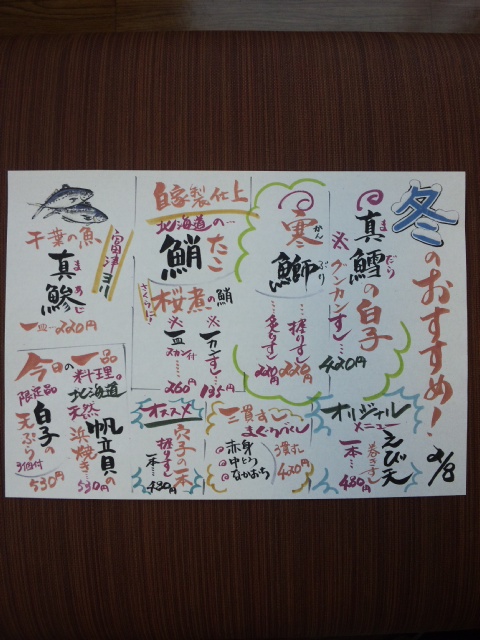 冬のおすすめ!
2/8
真鱈の白子
まだら
※グンカンすし…
420円
寒鰤
かんぶり
…握りすし
220円
…炙りすし
220円
自家製仕上
北海道の…
鮹たこ
桜煮の鮹
さくらに!
※一カンすし…
135円
※一皿
2カン付
……
260円
千葉の魚
富津ヨリ
真鯵
まあじ
一皿…220円
オリジナル
メニュー
えび天
巻きすし
一本…
480円
三貫すし
まぐろづくし
赤身
中とろ
なかおち
3貫すし
420円
オススメ
穴子の一本
握りすし
一本…
480円
今日の一品
料理。
北海道
天然
帆立貝の
浜焼き
…530円
限定品
白子の
天ぷら
3個付
530円